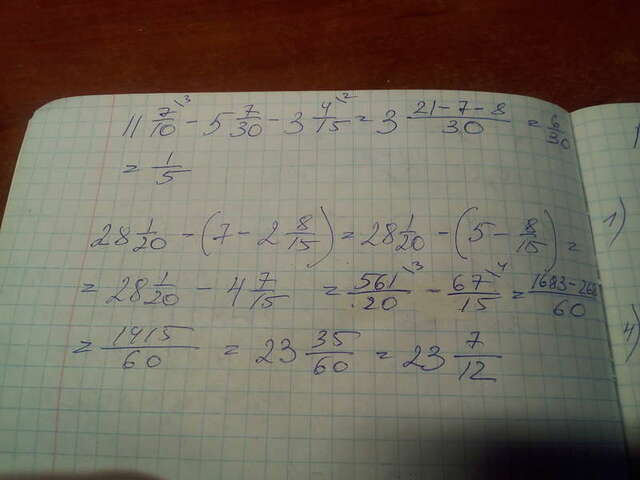 11 7\3/10 - 5 7/30 - 3 4\2/15 = 3 21-7-8/30 = 6/30
= 1/5
28 1/20 - (7 - 2 8/15) = 28 1/20 - (5 - 8/15) =
= 28 1/20 - 4 7/15 = 561\3/20 - 67\4/15 = 1683-268/60
= 1415/60 = 23 35/60 = 23 7/12
1)
4)